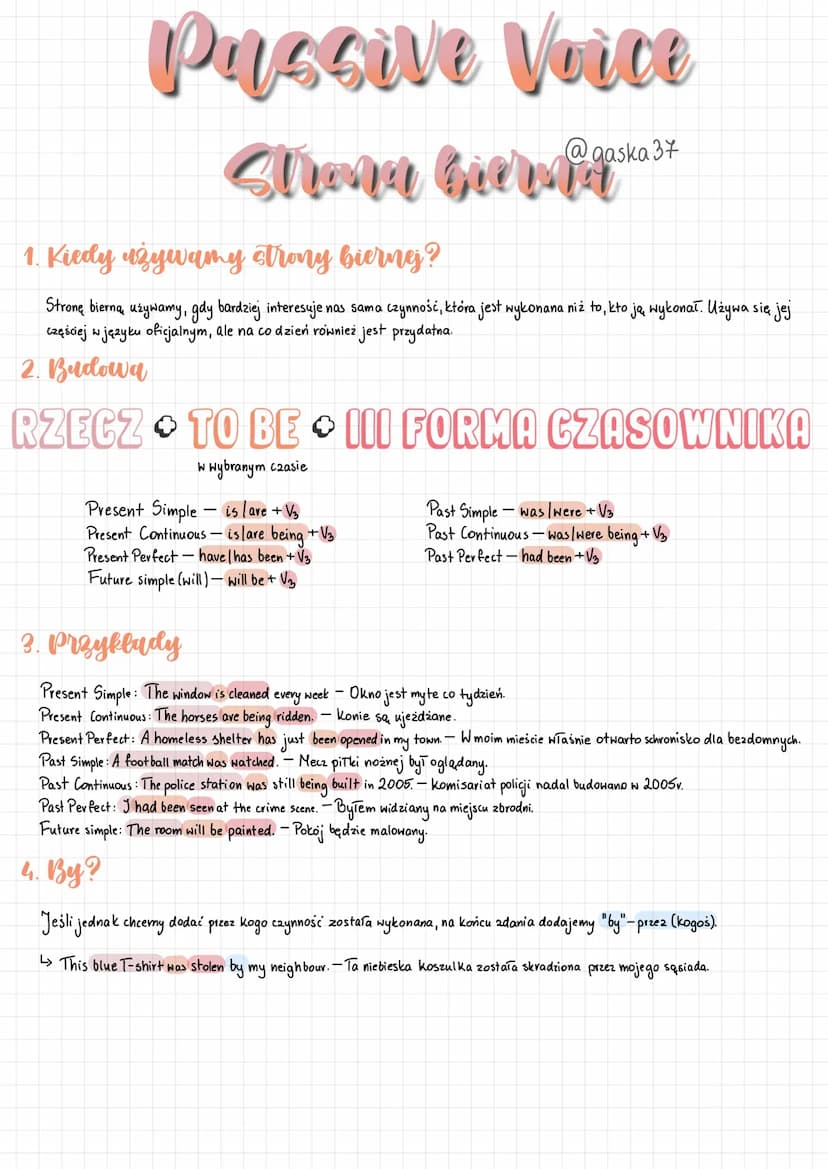 Passive Voice
Strona bierna
@gaska37
1. Kiedy używamy strony biernej?
Stronę bierną używamy, gdy bardziej interesuje nas sama czynność, która jest wykonana niż to, kto ją wykonał. Używa się jej
częściej w języku oficjalnym, ale na co dzień również jest przydatna.
2. Budowa
RZECZ + TO BE + III FORMA CZASOWNIKA
w wybranym czasie
Present Simple — is/are + V3
Present Continuous — is/are being + V3
Present Perfect — have/has been + V3
Future simple (will) — will be + V3
Past Simple — was/were + V3
Past Continuous — was/were being + V3
Past Perfect — had been + V3
3. Przykłady
Present Simple: The window is cleaned every week — Okno jest myte co tydzień.
Present Continuous: The horses are being ridden. — Konie są ujeżdżane.
Present Perfect: A homeless shelter has just been opened in my town. — W moim mieście właśnie otwarto schronisko dla bezdomnych.
Past Simple: A football match was watched. — Mecz piłki nożnej był oglądany.
Past Continuous: The police station was still being built in 2005. — Komisariat policji nadal budowano w 2005r.
Past Perfect: I had been seen at the crime scene. — Byłem widziany na miejscu zbrodni.
Future simple: The room will be painted. — Pokój będzie malowany.
4. By?
Jeśli jednak chcemy dodać przez kogo czynność została wykonana, na końcu zdania dodajemy "by" — przez (kogoś).
↳ This blue T-shirt was stolen by my neighbour. — Ta niebieska koszulka została skradziona przez mojego sąsiada.